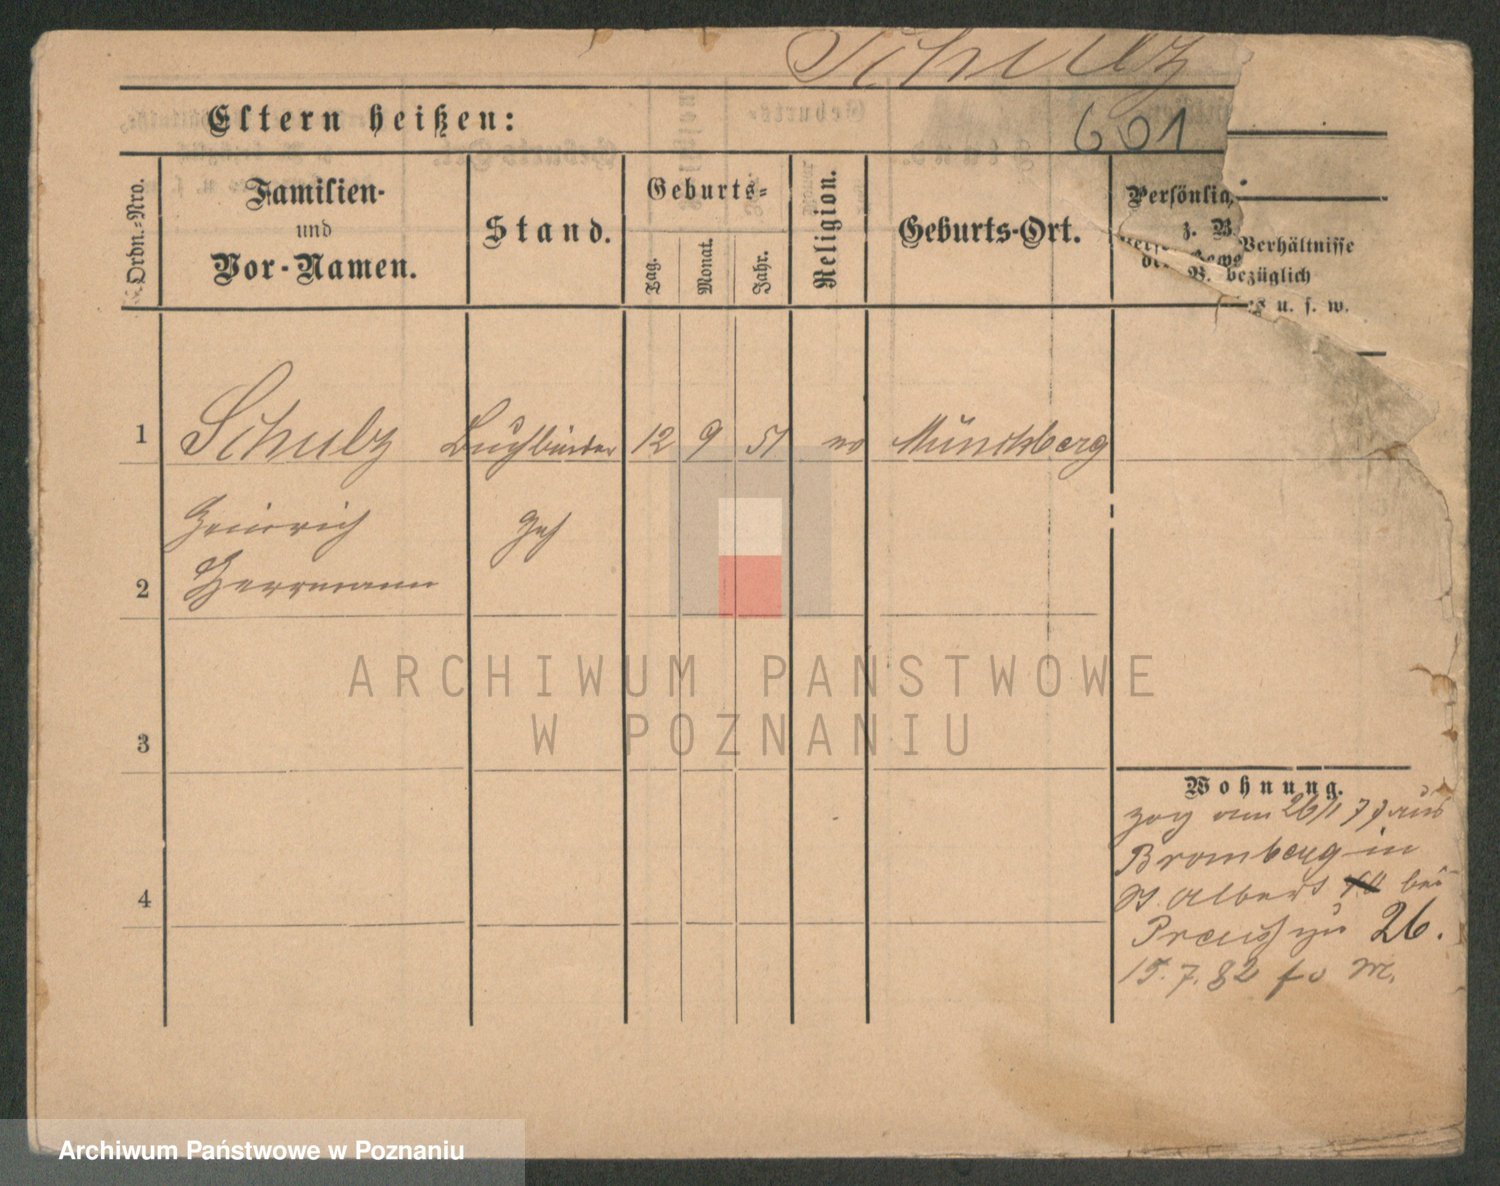 Schulz
Eltern heißen:
601
Ordn.-Nro.
Familien-
und
Vor-Namen.
Stand.
Geburts-
Tag.
Monat.
Jahr.
Religion.
Geburts-Ort.
Persönlic
z. B.
Verhältnisse
bezüglich
u. s. w.
1 Schulz Buchbinder 12 9 51 ev Müncheberg
Heinrich Geh
2 Herrmann
3
4
ARCHIWUM PAŃSTWOWE
W POZNANIU
Wohnung.
zog am 26/1 77 aus
Bromberg in
St. Albert bei
26.
15.7.82
Archiwum Państwowe w Poznaniu